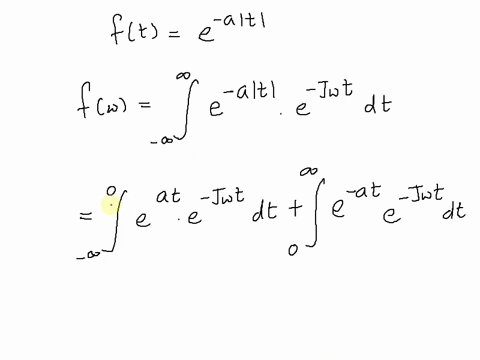 f(t) = e^{-a|t|}
f(ω) = ∫_{-∞}^{∞} e^{-a|t|} . e^{-Jωt} dt
= ∫_{-∞}^{0} e^{at} . e^{-Jωt} dt + ∫_{0}^{∞} e^{-at} e^{-Jωt} dt